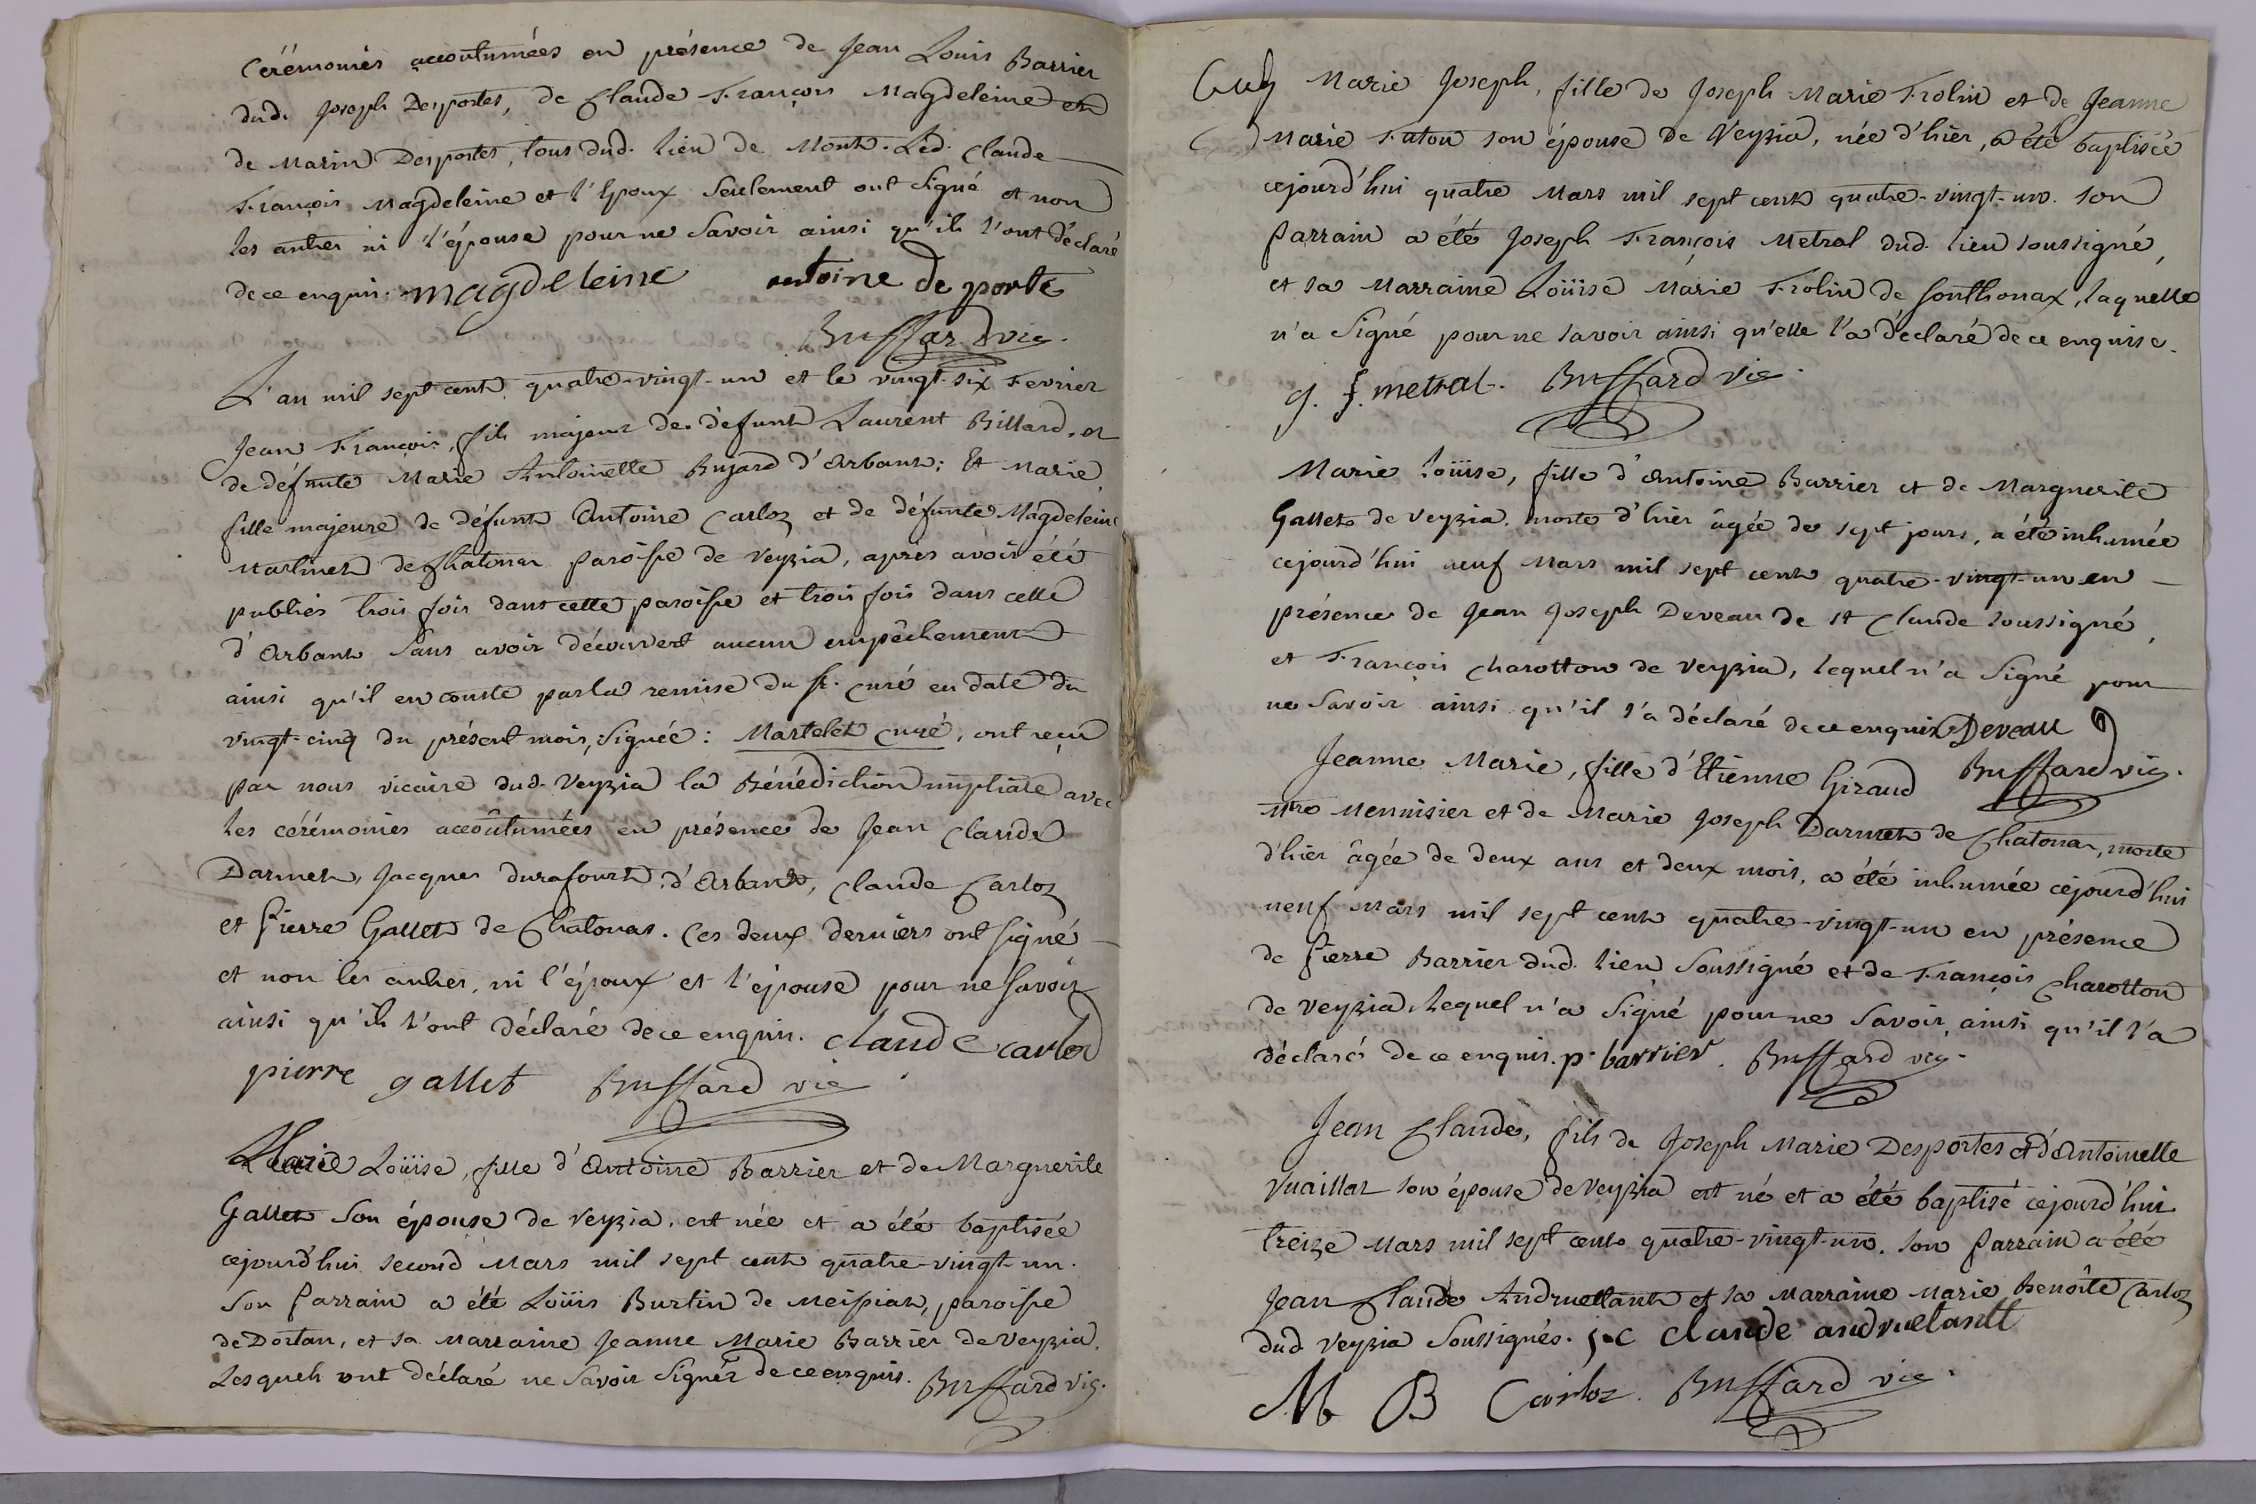 Cérémonies accoutumées en présence de Jean Louis Barrier
dud. Joseph Desportes, de Claude François Magdeleine et
de Marin Desportes, tous dud. lieu de Mont. Led. Claude
François Magdeleine et l'Epoux seulement ont signé et non
les autres ni l'épouse pour ne savoir ainsi qu'ils l'ont déclaré
de ce enquis. magdeleine antoine de porte
Buffard vic.
L'an mil sept cent quatre-vingt-un et le vingt-six Fevrier
Jean François, fils majeur de défunt Laurent Billard, et
de défunte Marie Antoinette Bujard d'Arbant; Et Marie
fille majeure de défunt Antoine Carloz et de défunte Magdeleine
Martinet de Chatonas paroisse de Veyzia, après avoir été
publiés trois fois dans cette paroisse et trois fois dans celle
d'Arbant sans avoir découvert aucun empêchement
ainsi qu'il en conste par la remise du Sr. Curé en date du
vingt-cinq du présent mois, signée: Martelet Curé, ont reçu
par nous vicaire dud. Veyzia la Bénédiction nuptiale avec
les cérémonies accoûtumées en présence de Jean Claude
Darmet, Jacques Durafourt d'Arbant, Claude Carloz
et Pierre Gallet de Chatonas. Ces deux derniers ont signé
et non les autres, ni l'époux et l'épouse pour ne savoir
ainsi qu'ils l'ont déclaré de ce enquis. claude carloz
pierre gallet Buffard vic.
Marie Loüise, fille d'Antoine Barrier et de Marguerite
Gallet son épouse de Veyzia, est née et a été baptisée
cejourd'hui second Mars mil sept cent quatre-vingt-un.
Son Parrain a été Loüis Burtin de Meissiat, paroisse
de Dortan, et sa Marraine Jeanne Marie Barrier de Veyzia,
Lesquels ont déclaré ne savoir signer de ce enquis. Buffard vic.
Marie Joseph, fille de Joseph Marie Frolin et de Jeanne
Marie Futon son épouse de Veyzia, née d'hier, a été baptisée
cejourd'hui quatre Mars mil sept cent quatre-vingt-un. Son
Parrain a été Joseph François Metral dud. lieu soussigné,
et sa Marraine Loüise Marie Frolin de Sonthonax, laquelle
n'a signé pour ne savoir ainsi qu'elle l'a déclaré de ce enquise.
j. f. metral. Buffard vic.
Marie Loüise, fille d'Antoine Barrier et de Marguerite
Gallet de Veyzia, morte d'hier âgée de sept jours, a été inhumée
cejourd'hui neuf Mars mil sept cent quatre-vingt-un en
présence de Jean Joseph Deveau de St Claude soussigné,
et François Charotton de Veyzia, lequel n'a signé pour
ne savoir ainsi qu'il l'a déclaré de ce enquis Deveau
Buffard vic.
Jeanne Marie, fille d'Etienne Giraud
Mtre Menuisier et de Marie Joseph Darmet de Chatonas, morte
d'hier âgée de deux ans et deux mois, a été inhumée cejourd'hui
neuf Mars mil sept cent quatre-vingt-un en présence
de Pierre Barrier dud. lieu soussigné et de François Charotton
de Veyzia, lequel n'a signé pour ne savoir, ainsi qu'il l'a
déclaré de ce enquis. p. barrier. Buffard vic.
Jean Claude, fils de Joseph Marie Desportes et d'Antoinette
Vuaillat son épouse de Veyzia est né et a été baptisé cejourd'hui
treize Mars mil sept cent quatre-vingt-un. Son Parrain a été
Jean Claude Andruetant et sa Marraine Marie Benoîte Carloz
dud. Veyzia soussignés. j. c claude andruetantt
M B Carloz. Buffard vic.